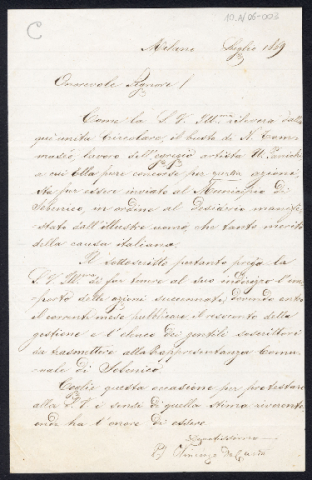 C
10.A/06-006
Milano Luglio 18
Onorevole Signore!
Come la S. V. Ill.ma rileverà dalla
qui unita Circolare, il busto di N. Tom-
maséo, lavoro dell'egregio artista
a cui Ella pure concorse per azioni,
sta per essere inviato al Municipio di
Sebenico, in ordine al desiderio manife-
stato dall'illustre uomo che tanto meritò
della causa italiana.
Il sottoscritto pertanto prega la
S. V. Ill.ma di far tenere al suo indirizzo l'im-
porto delle azioni succennate, dovendo entro
il corrente mese pubblicare il resoconto della
gestione e l'elenco dei gentili soscrittori
da trasmettere alla Rappresentanza Comu-
nale di Sebenico.
Coglie questa occasione per protestare
alla S. V. i sensi di quella stima riverente
onde ha l'onore di essere